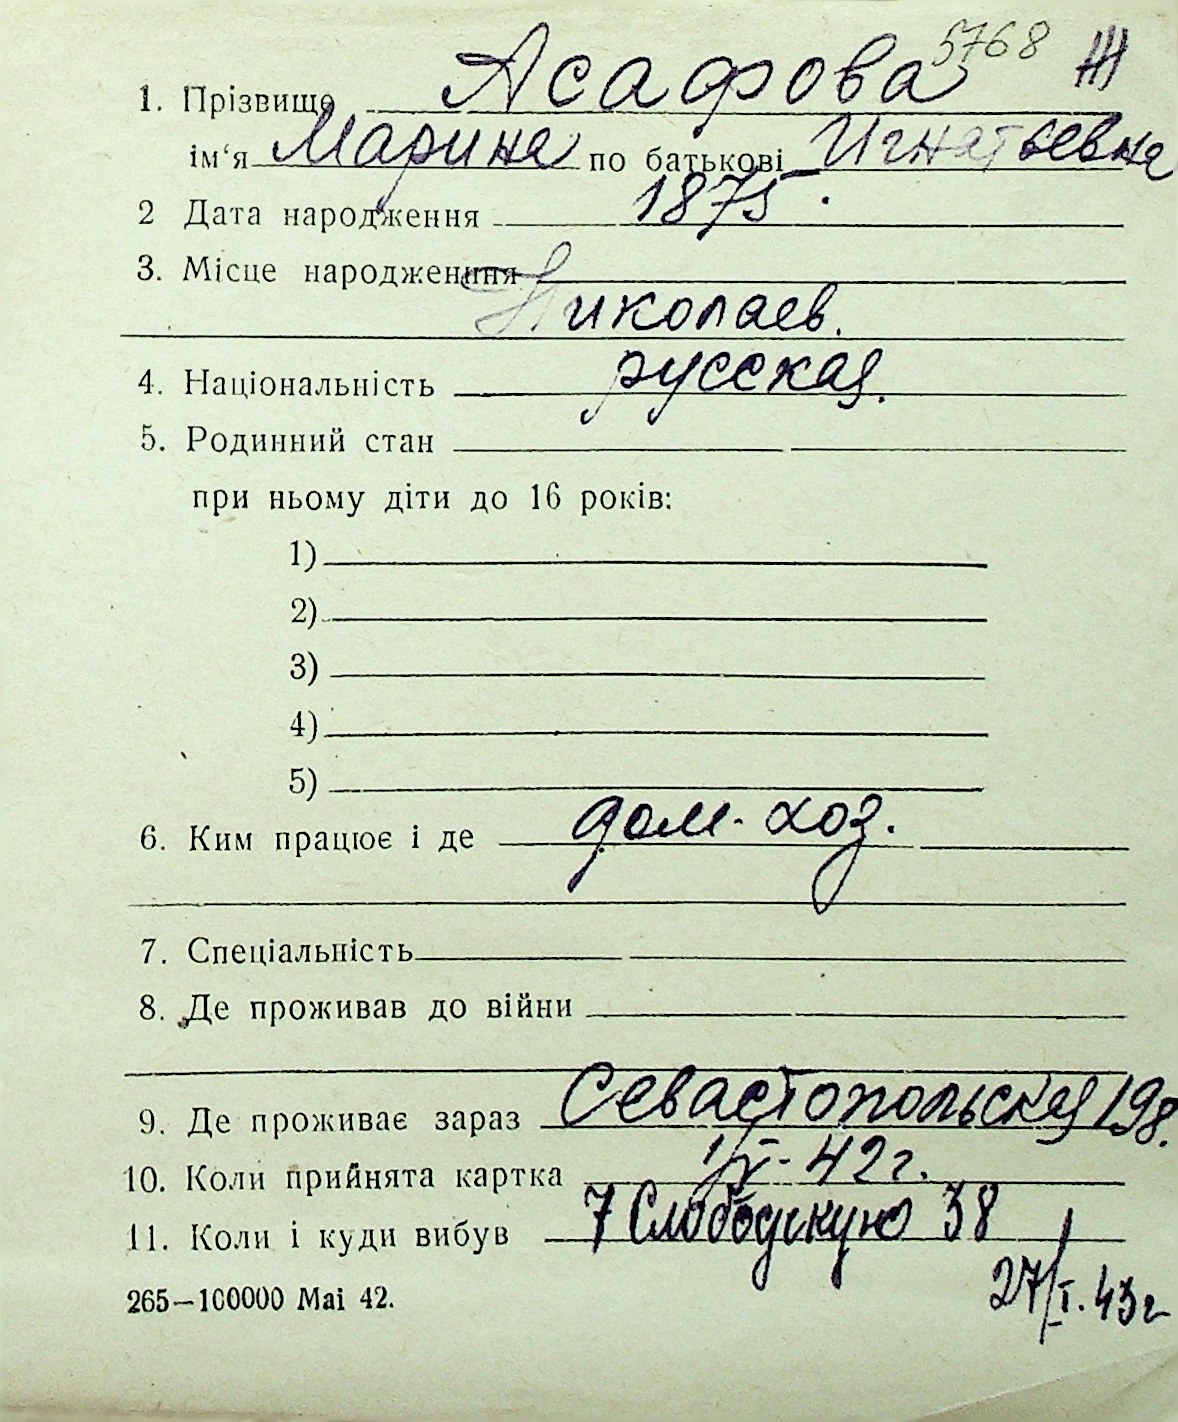 5768 Ж
1. Прізвище Асафова
ім‘я Марина по батькові Игнатьевна
2 Дата народження 1875.
3. Місце народженння
Николаев.
4. Національність русская.
5. Родинний стан
при ньому діти до 16 років:
1)
2)
3)
4)
5)
6. Ким працює і де дом. хоз.
7. Спеціальність
8. Де проживав до війни
9. Де проживає зараз Севастопольская 198.
10. Коли прийнята картка 1/X-42 г.
11. Коли і куди вибув 7 Слободскую 38
27/I.43 г
265—100000 Mai 42.